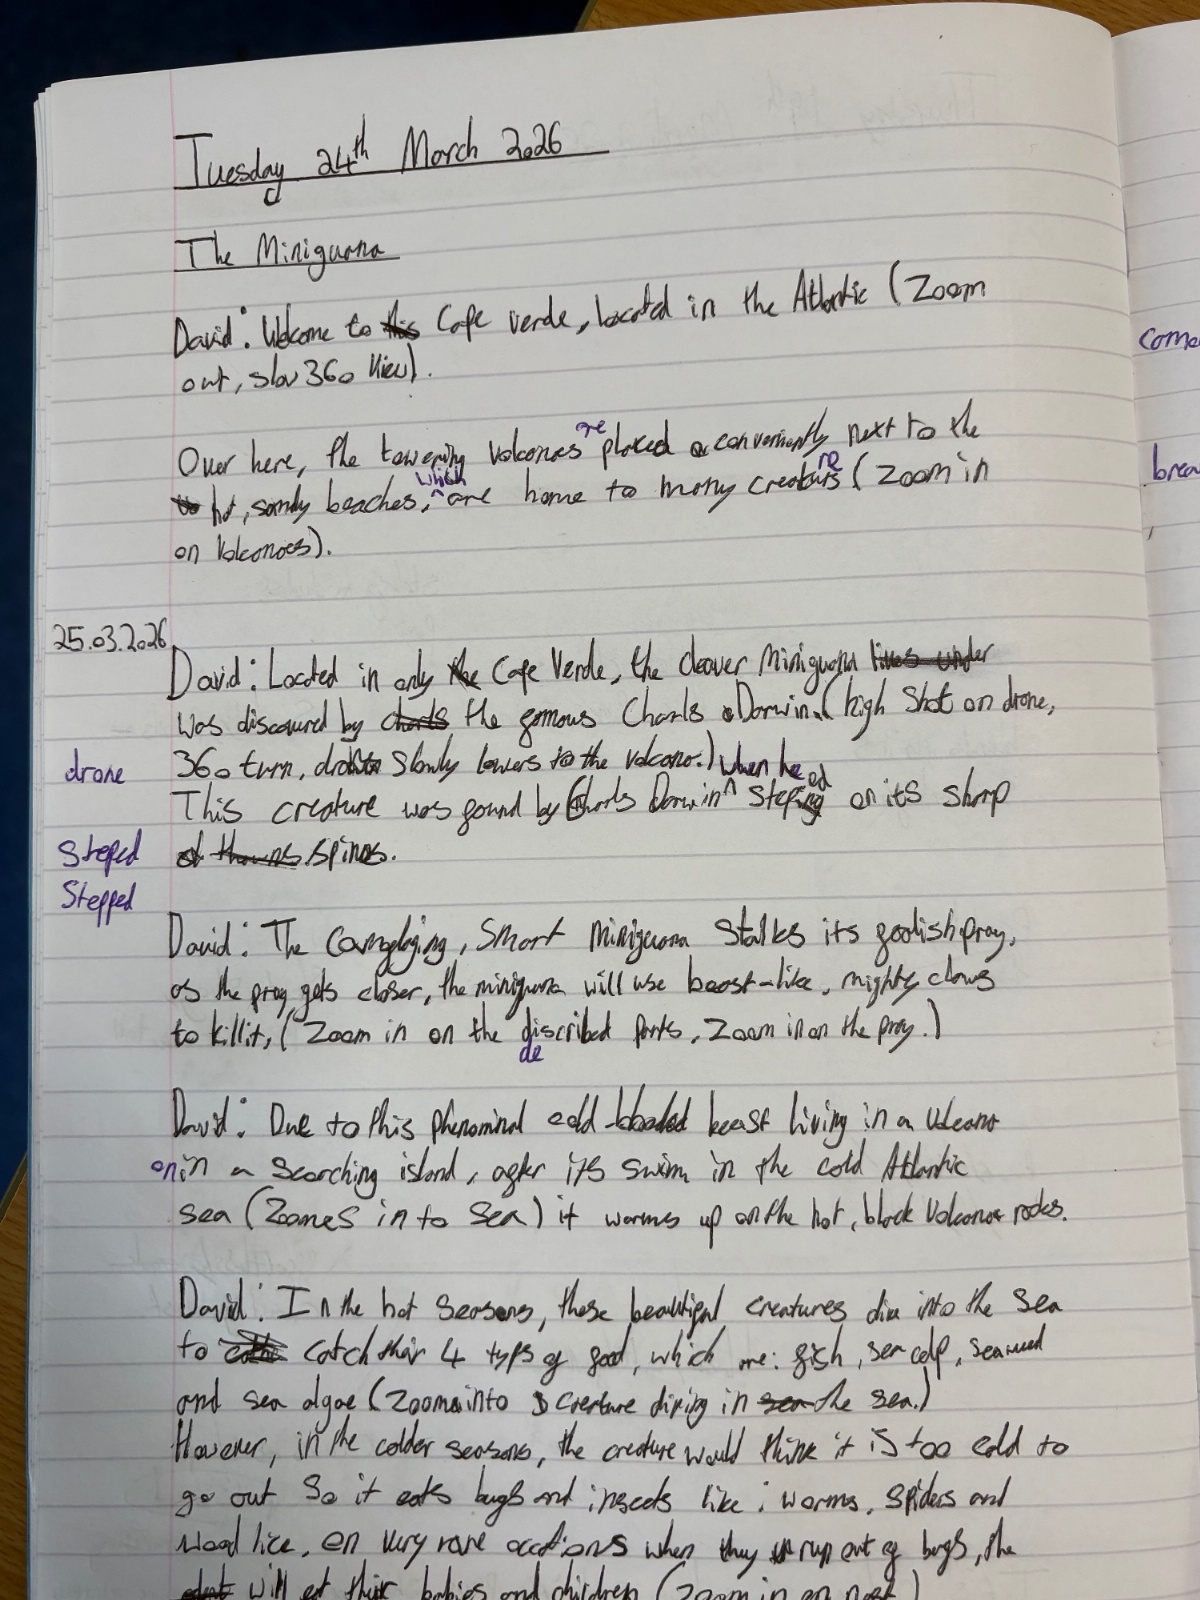 Tuesday 24th March 2026
The Miniguana
David: Welcome to this Cape Verde, located in the Atlantic (Zoom
out, slow 360 View).
Over here, the towering volcanoes are placed conveniently next to the
hot, sandy beaches, which are home to many creatures (Zoom in
on Volcanoes).
25.03.2026
David: Located in only the Cape Verde, the cleaver Miniguana lives under
was discoured by charls the famous Charls Darwin. (high shot on drone,
drone
360 turn, slowly lowers to the volcano.)
This creature was found by Charls Darwin when he stepped on its sharp
Steped
thorns spines.
Stepped
David: The smart Miniguana stalks its foolish pray,
as the pray gets closer, the miniguana will use beast-like, mighty claws
to kill it, (Zoom in on the discribed parts, Zoom in on the pray.)
de
David: Due to this phenominal cold-blooded beast living in a Volcano
on in a scorching island, after its swim in the cold Atlantic
sea (Zomes in to sea) it warms up on the hot, black Volcanoe rocks.
David: In the hot seasons, these beautifal creatures dive into the sea
to catch their 4 typs of food, which are: fish, sea celp, seaweed
and sea algae (Zoomes into creature diving in sea the sea.)
However, in the colder seasons, the creature would think it is too cold to
go out so it eats bugs and insects like: worms, spiders and
wood lice, on very rare occations when they run out of bugs, the
will eat their babies and children (Zoom in on nest)
come
brea